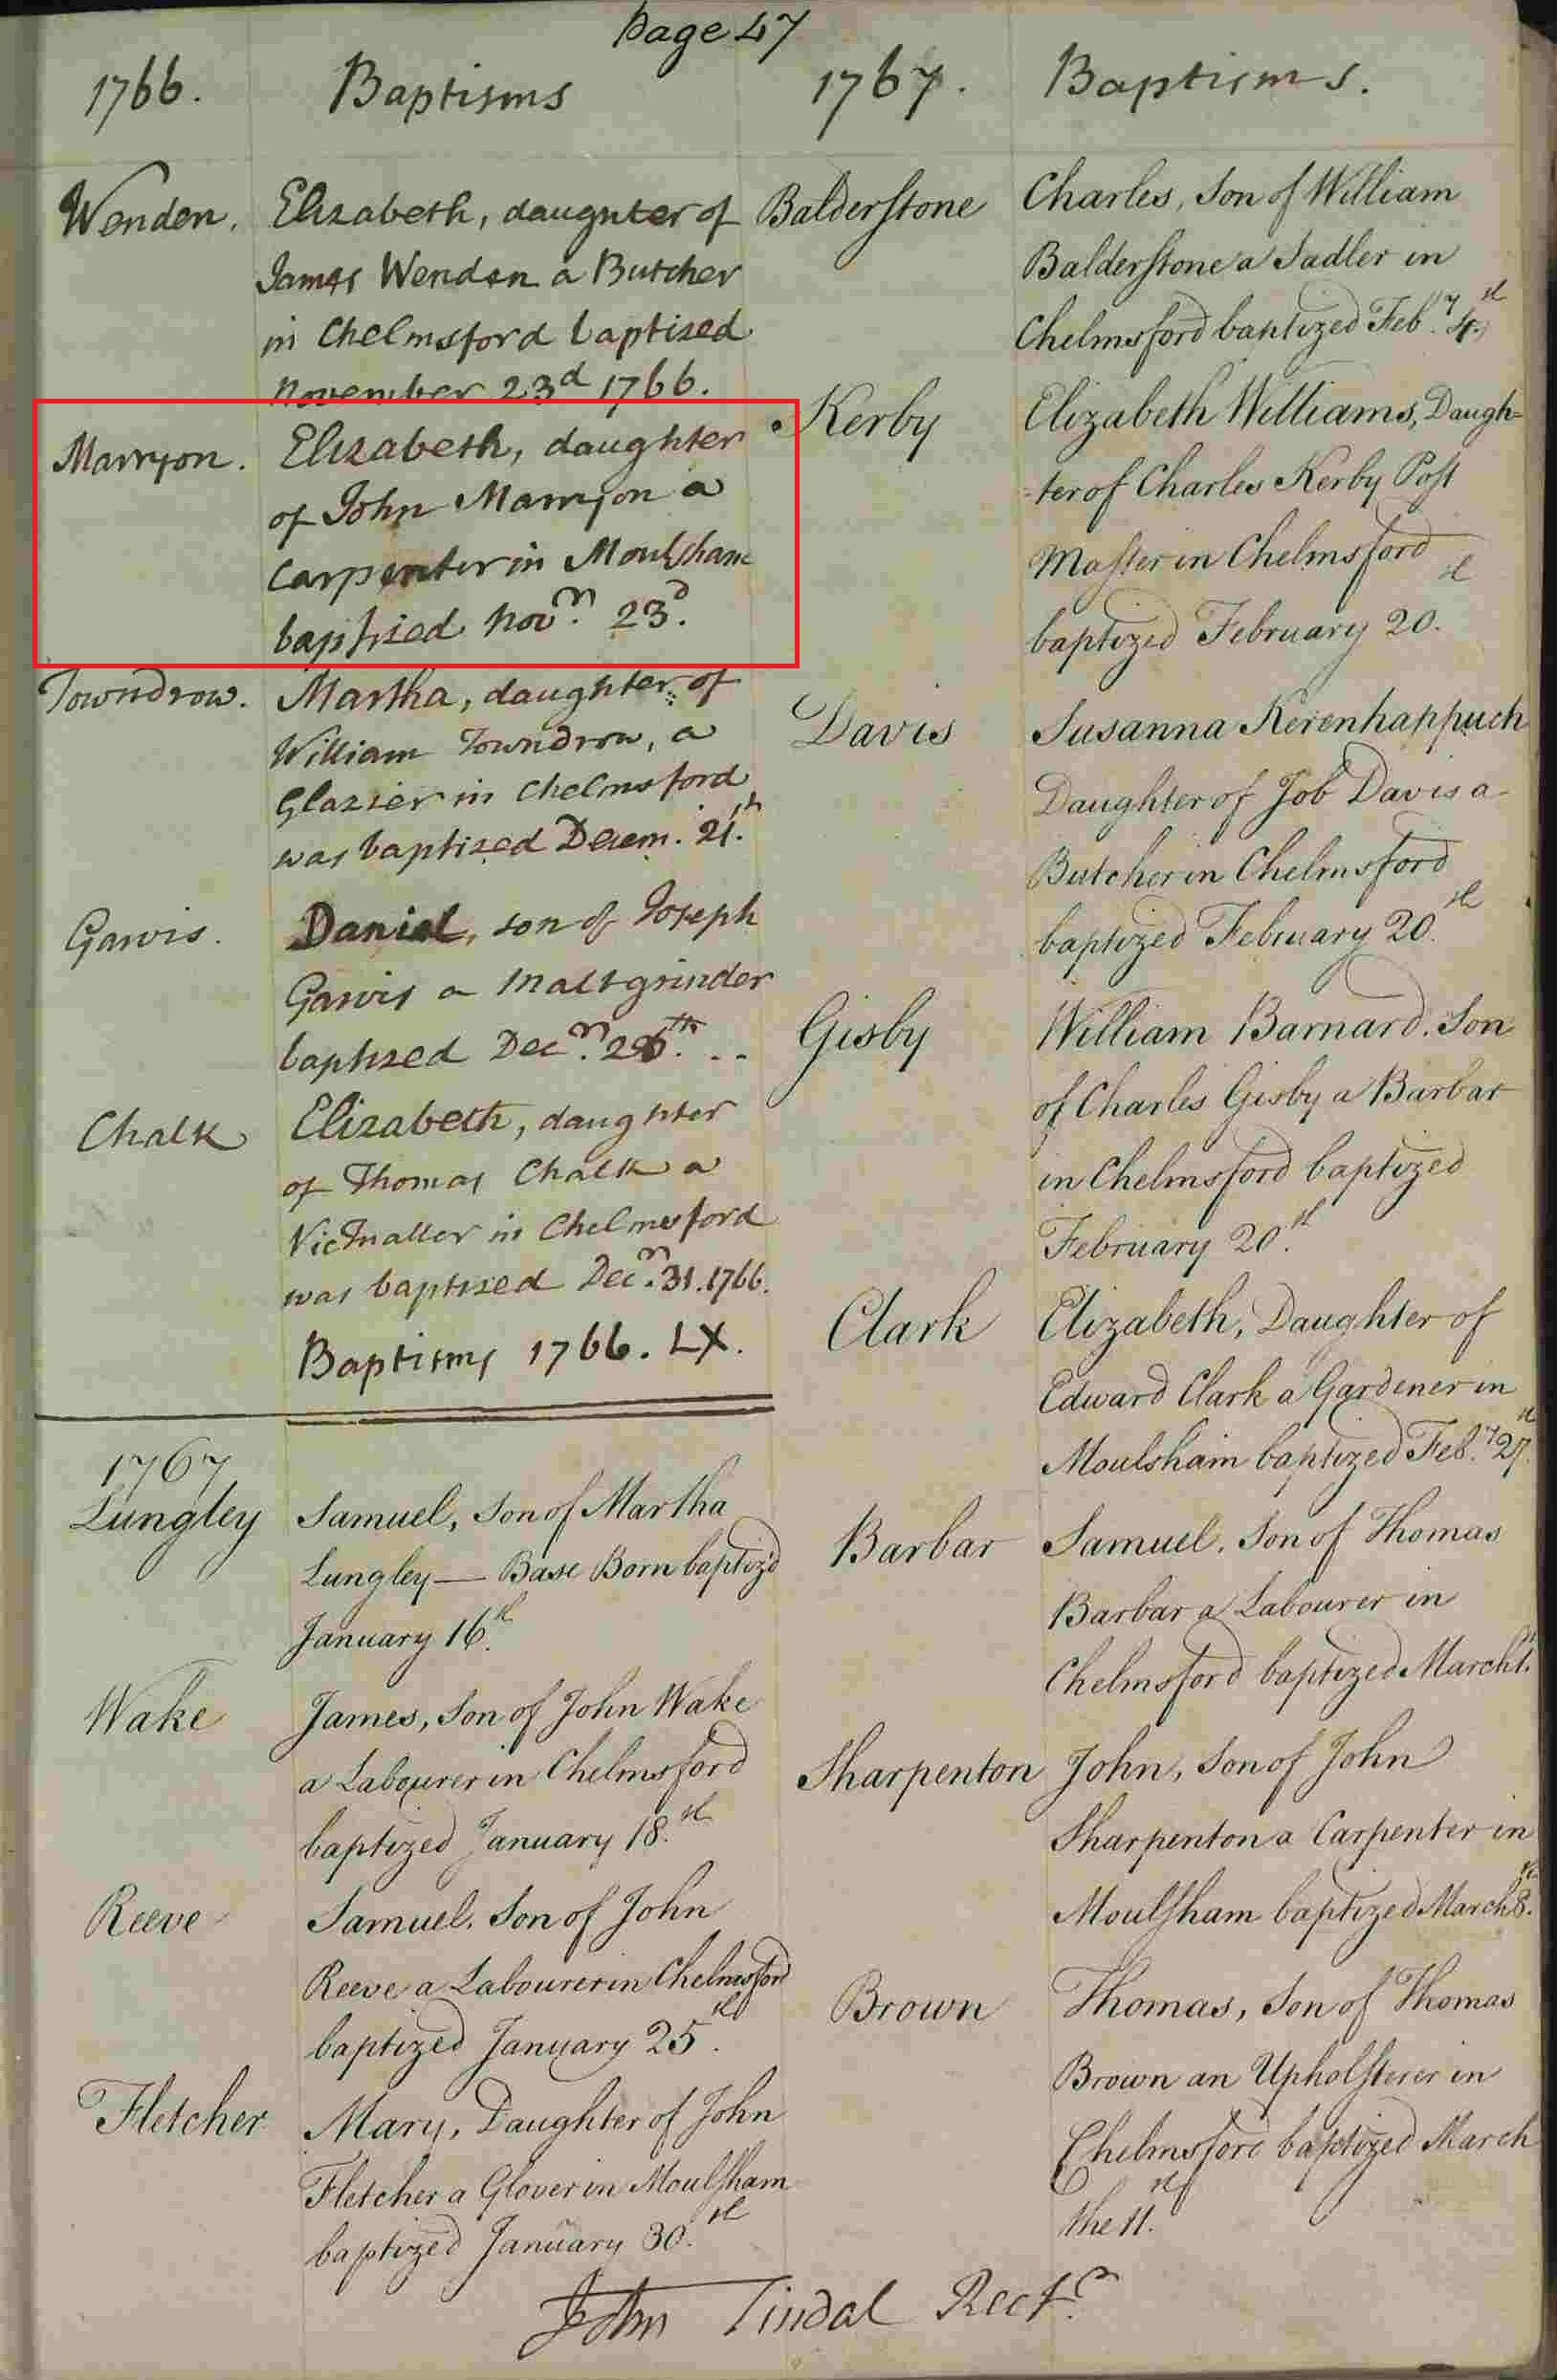 Page 47
1766. Baptisms
Wenden. Elizabeth, daughter of
James Wenden a Butcher
in Chelmsford baptized
November 23d 1766.
Marryon. Elizabeth, daughter
of John Marryon a
Carpenter in Moulsham
baptized Novr. 23d.
Towndrow. Martha, daughter of
William Towndrow, a
Glazier in Chelmsford
was baptized Decem. 21.
Garvis. Daniel, son of Joseph
Garvis a Maltgrinder
baptized Decr. 26th. --
Chalk Elizabeth, daughter
of Thomas Chalk a
Victualler in Chelmsford
was baptized Decr. 31. 1766.
Baptisms 1766. LX.
1767
Lungley Samuel, Son of Martha
Lungley — Base Born baptiz'd
January 16th.
Wake James, Son of John Wake
a Labourer in Chelmsford
baptized January 18.th
Reeve Samuel. Son of John
Reeve a Labourer in Chelmsford
baptized January 25th.
Fletcher Mary, Daughter of John
Fletcher a Glover in Moulsham
baptized January 30.th
1767. Baptisms.
Balderstone Charles, Son of William
Balderstone a Sadler in
Chelmsford baptized Feb.y 4.th
Kerby Elizabeth Williams, Daugh=
=ter of Charles Kerby Post
Master in Chelmsford
baptized February 20.th
Davis Susanna Kerenhappuch
Daughter of Job Davis a
Butcher in Chelmsford
baptized February 20.th
Gisby William Barnard. Son
of Charles Gisby a Barbar
in Chelmsford baptized
February 20.th
Clark Elizabeth, Daughter of
Edward Clark a Gardener in
Moulsham baptized Feb.y 27.th
Barbar Samuel. Son of Thomas
Barbar a Labourer in
Chelmsford baptized March 1.st
Sharpenton John, Son of John
Sharpenton a Carpenter in
Moulsham baptized March 8.th
Brown Thomas, Son of Thomas
Brown an Upholsterer in
Chelmsford baptized March
the 11.th
John Tindal Rectr.